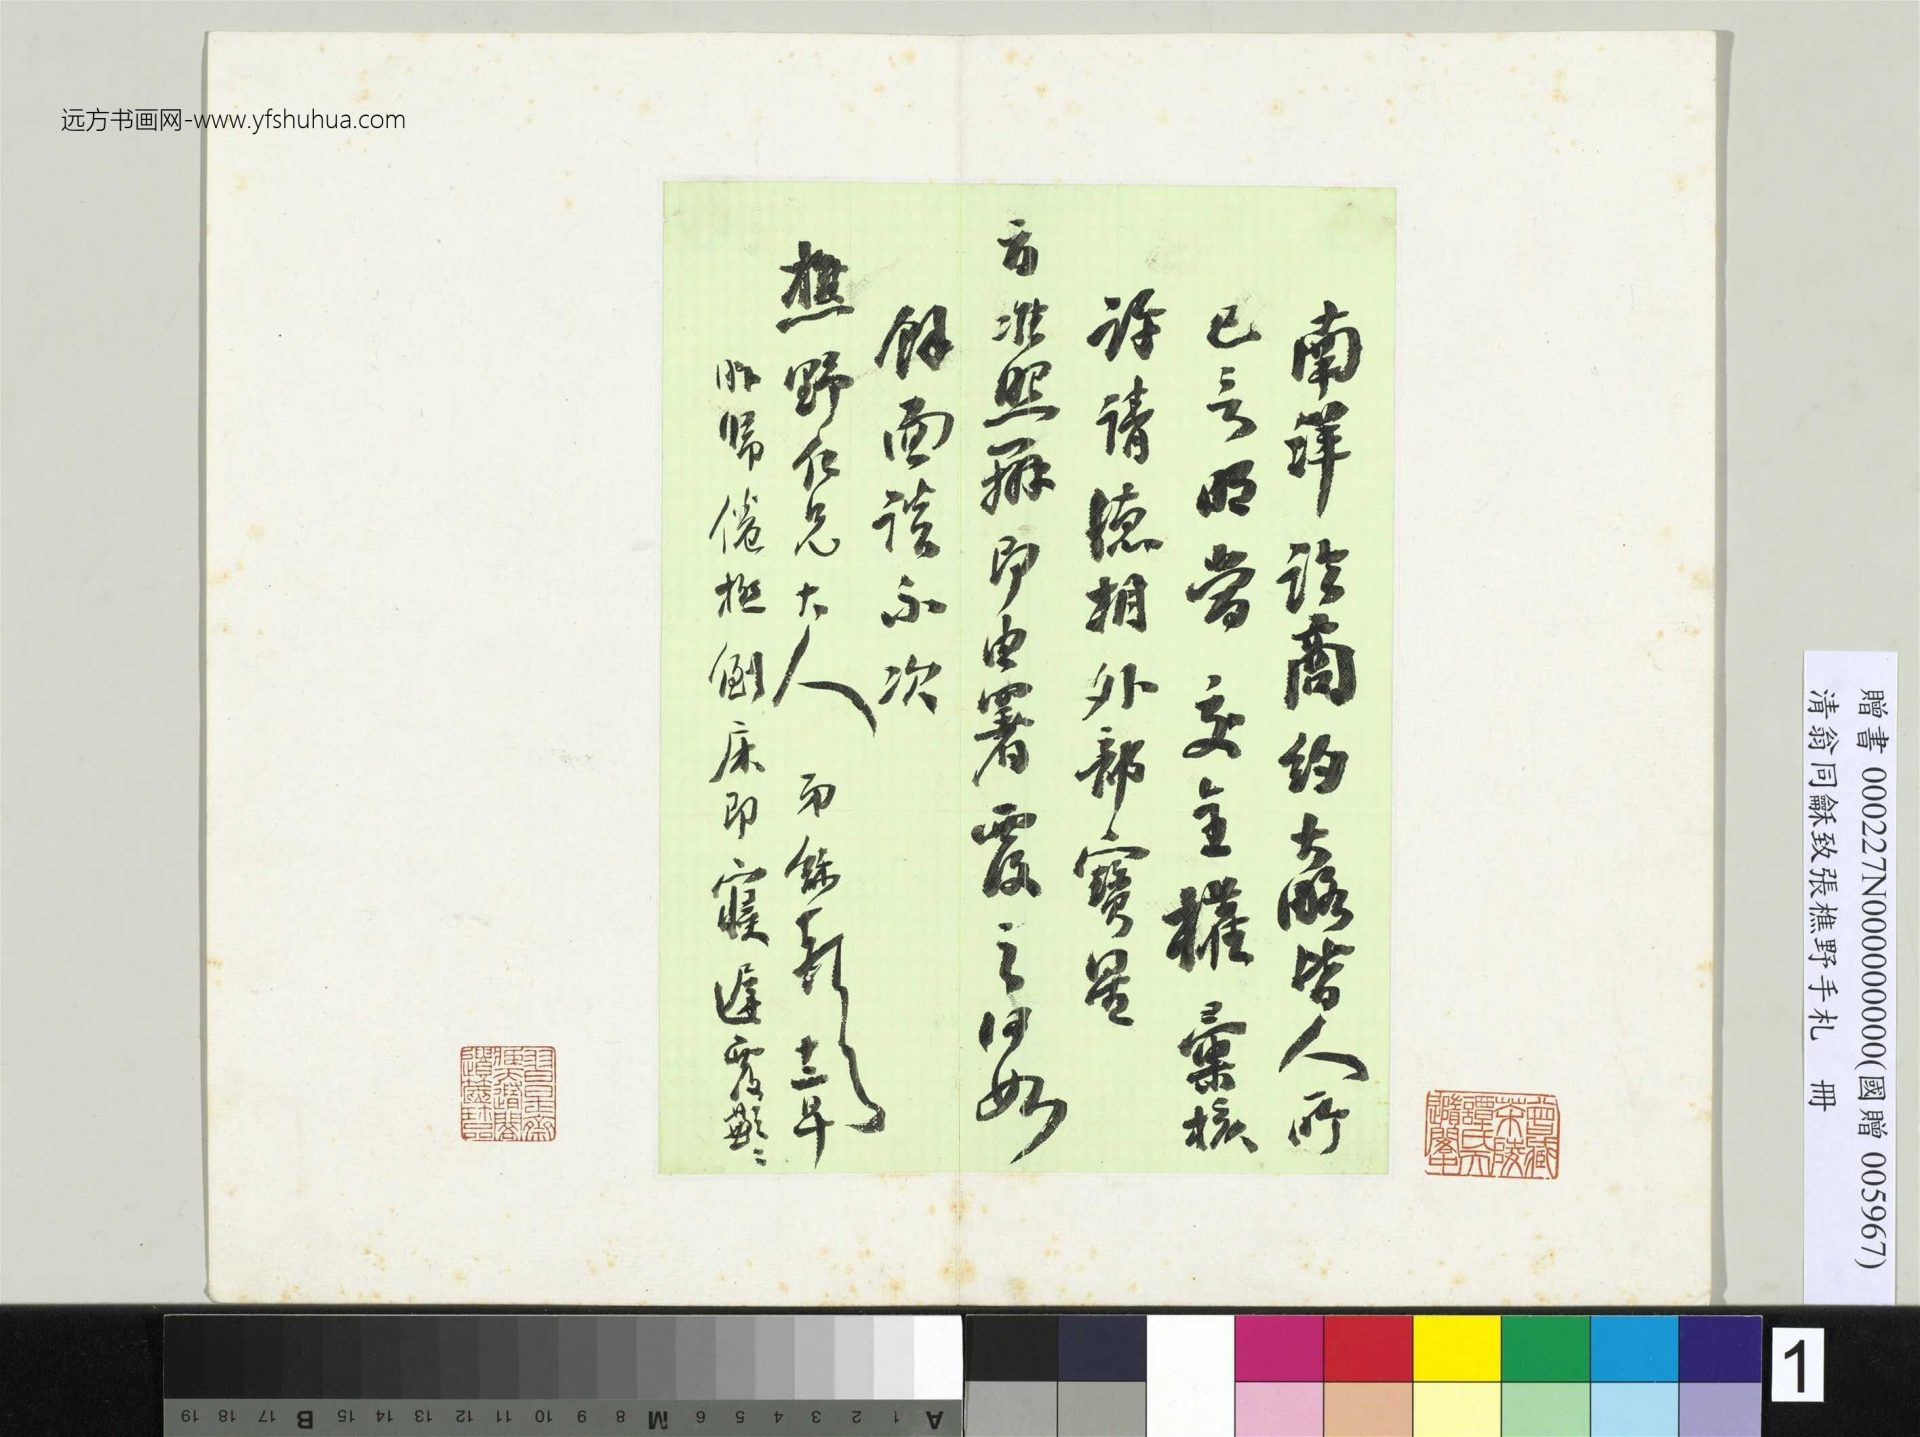 远方书画网-www.yfshuhua.com
南洋論商約大略皆人所
已言明當交全權彙核
許請德相外部寶星
准照辦即由署覆之何如
餘面談不次
樵野仁兄大人 弟龢頓首 早
昨歸倦極倒床即寢遲覆歉〻
贈書 000227N000000000(國贈 005967)
清翁同龢致張樵野手札 冊
1
A 1 2 3 4 5 6 M 8 9 10 11 12 13 14 15 B 17 18 19